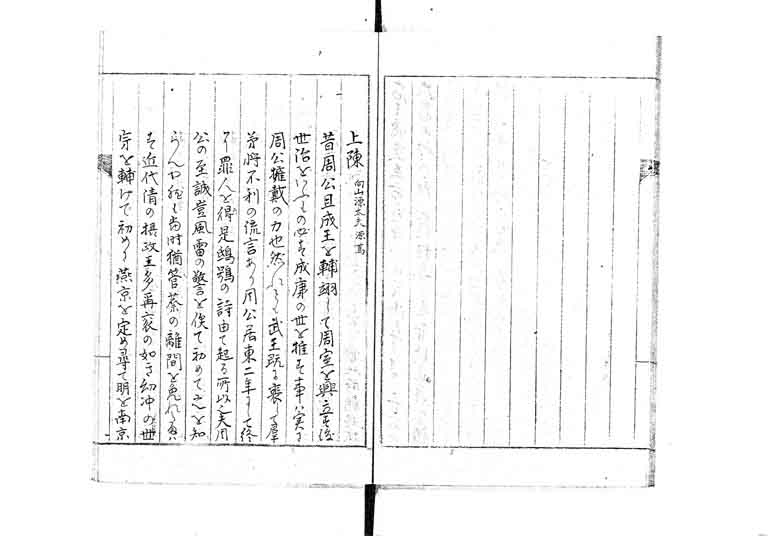 上陳 向山源太夫源篤
昔周公旦成王を輔翊して周室を興立す後
世治をいふもの必す成康の世を推す事実に
周公擁戴の力也然れとも武王既に喪して羣
弟将不利の流言あり周公居東二年にして終
に罪人を得是鴟鴞の詩由て起る所以也夫周
公の至誠豈風雷の警を俟て初めて之を知
らんや然とも当時猶管蔡の離間を免れ
す近代清の摂政王多再袞の如き幼冲の世
宗を輔けて初めて燕京を定め尋て明を南京